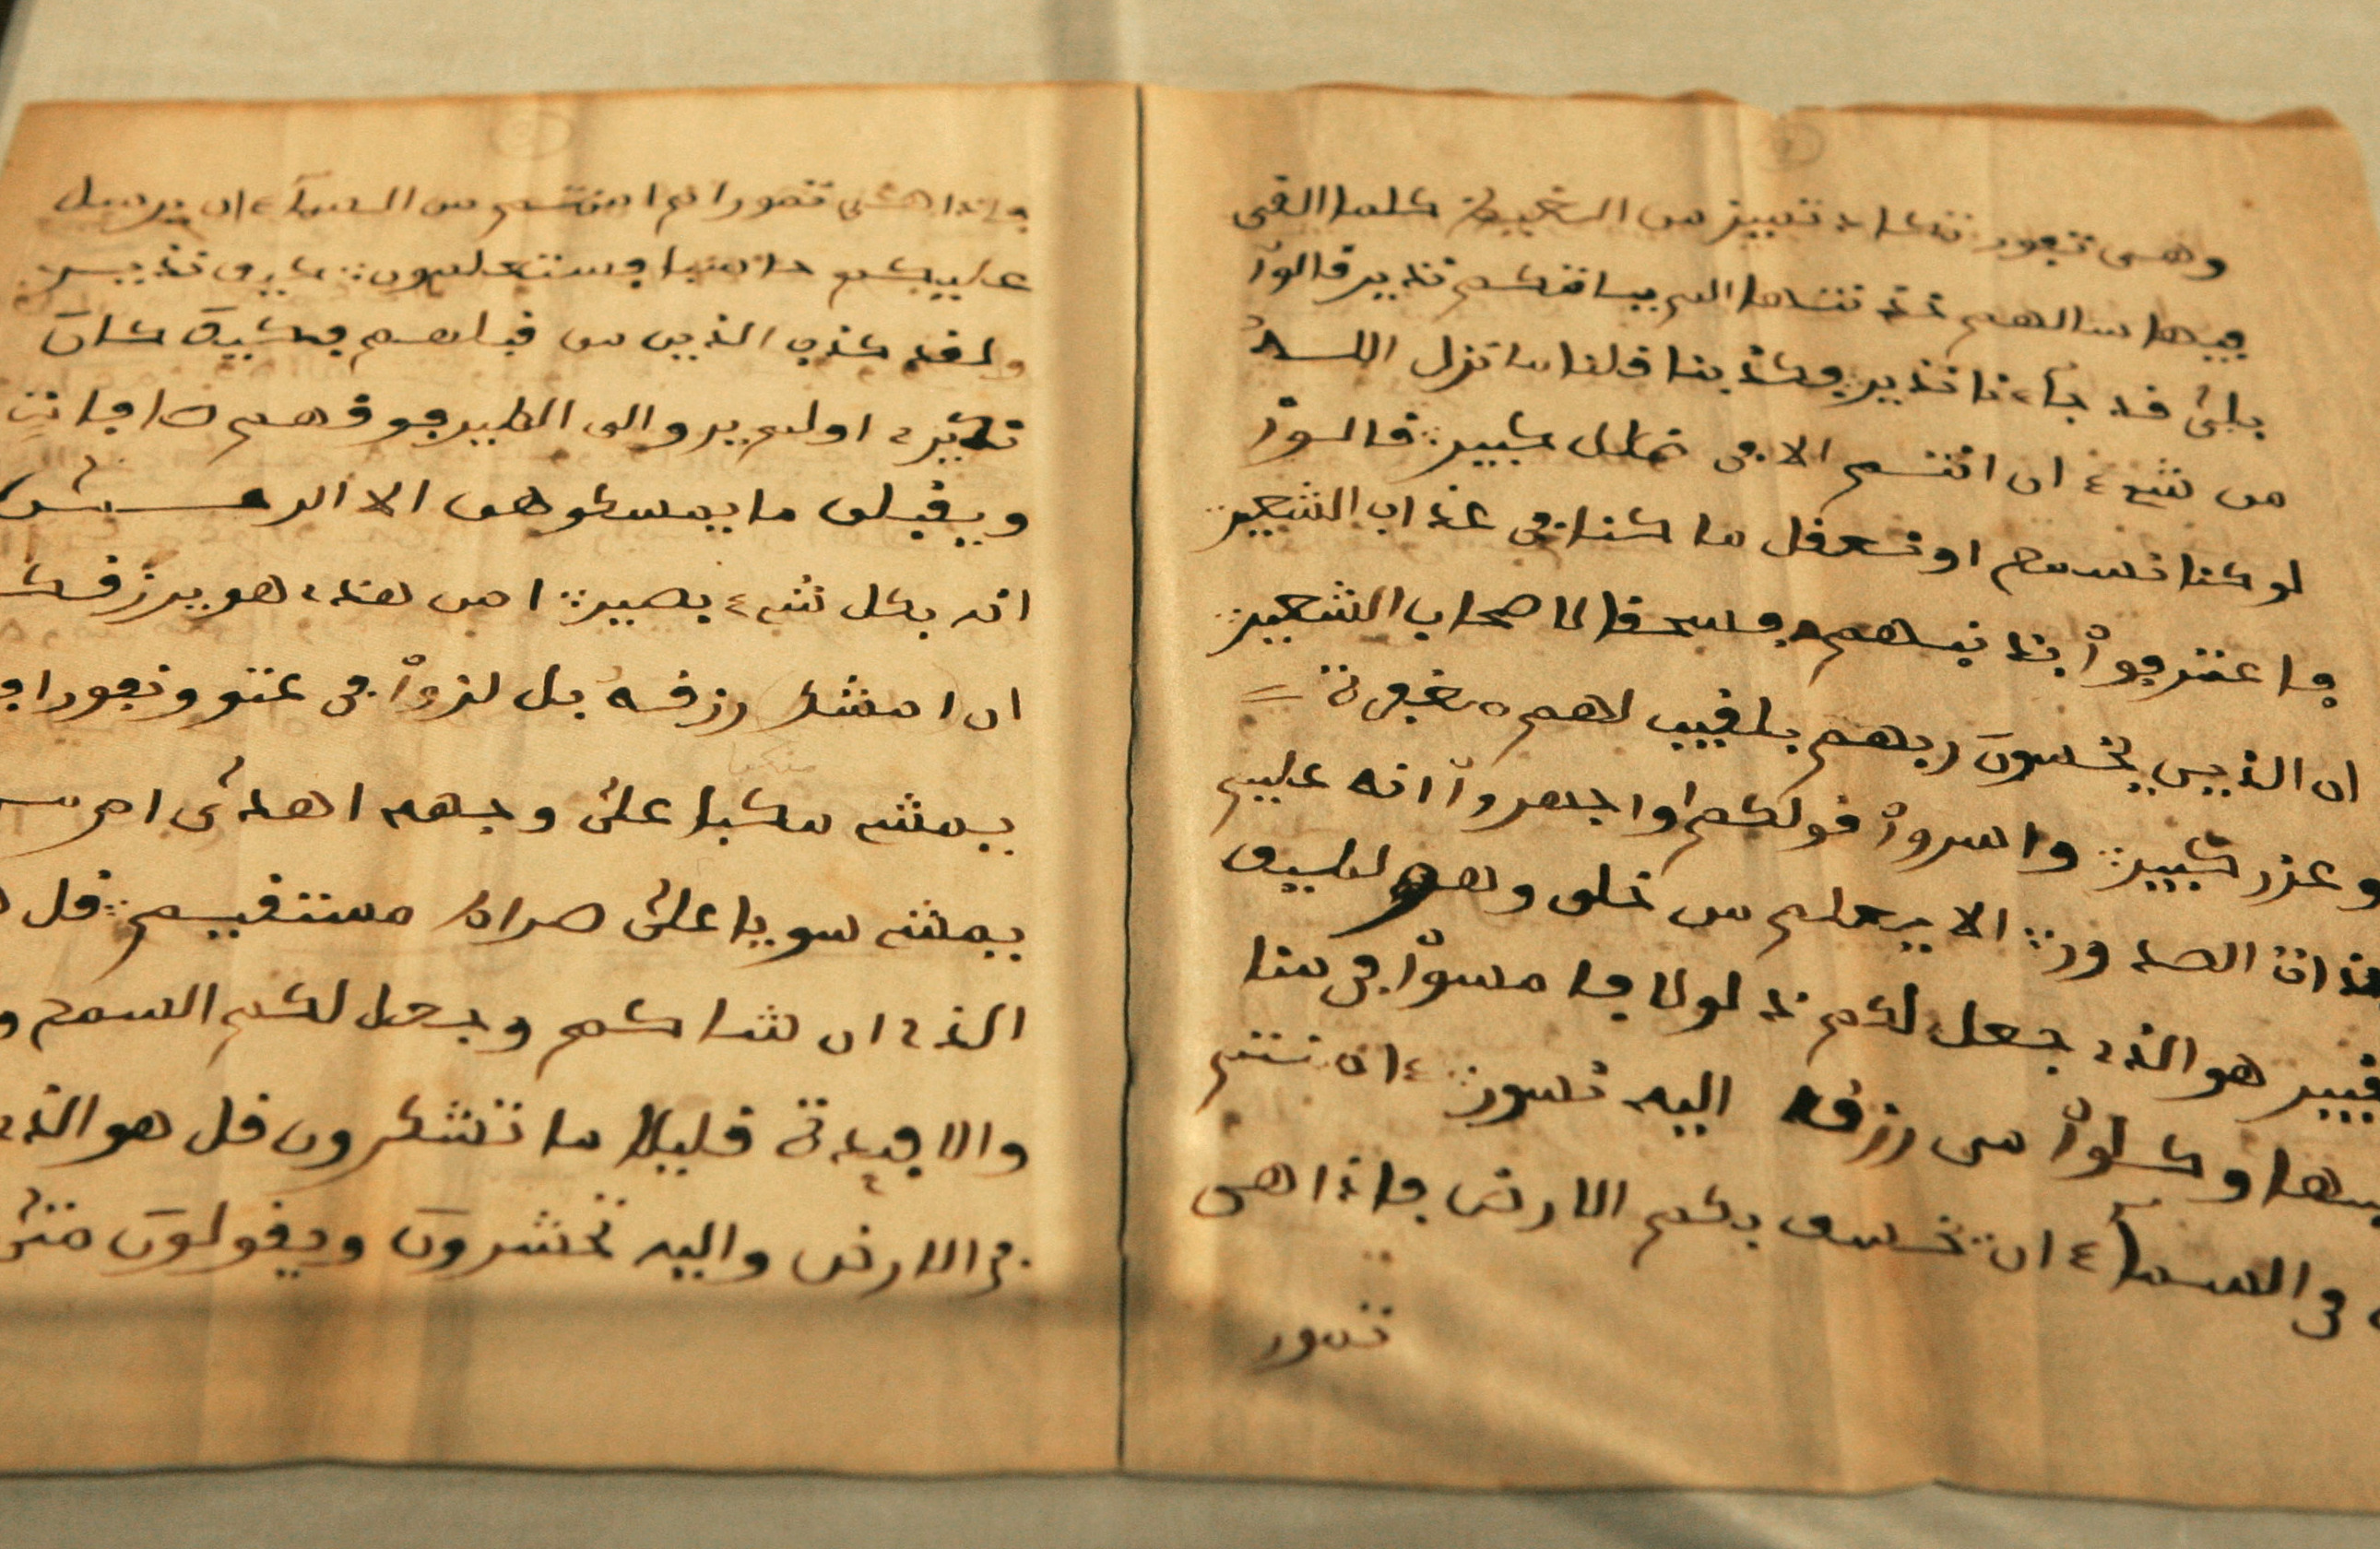 وهى تفور تكاد تميز من الغيظ كلما القى
فيها سالهم خزنتها الم ياتكم نذير قالوا
بلى قد جاءنا نذير فكذبنا قلنا ما نزل الله
من شىء ان انتم الا فى ضلل كبير قالوا
لو كنا نسمع او نعقل ما كنا فى عذاب الشعير
فاعترفوا بذنبهم فسحقا لاصحاب الشعير
ان الذين يخسون ربهم بلغيب لهم مغفرة
وعزر كبير واسروا قولكم او اجهروا انه عليم
بذات الصدور الا يعلم من خلق وهو لطيف
هو الذى جعل لكم ذلولا فامسوا فى منا
كبها وكلوا من رزقه اليه نسور ءان تتم
فى السماء ان نخسف بكم الارض فاذا هى
تمور
فاذا هى تمور ام امنتم من السماء ان يرسل
عليكم حاصبا فستعلمون كيف نذير
ولقد كذب الذين من قبلهم فكيف كان
نكير اولم يروا الى الطير فوقهم صافات
ويقبلن ما يمسكوهن الا الرحمن
انه بكل شىء بصير امن هذا هو يرزقك
ان امشك رزقه بل لزوا فى عتو ونفورا
منكبا
يمشى مكبا على وجهه اهدى امن
يمشى سويا على صراط مستقيم قل
الذى ان شاكم وجعل لكم السمع و
والافدة قليلا ما تشكرون قل هو الذى
فى الارض واليه تحشرون ويقولون متى